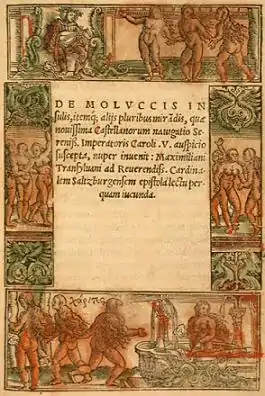 DE MOLVCCIS IN
sulis, itemq; alijs pluribus mirādis, quæ
nouissima Castellanorum nauigatio Se-
reniss. Imperatoris Caroli .V. auspicio
suscepta, nuper inuenit: Maximiliani
Transyluani ad Reuerendiss. Cardina-
lem Saltzburgensem epistola lectu per-
quam iucunda.